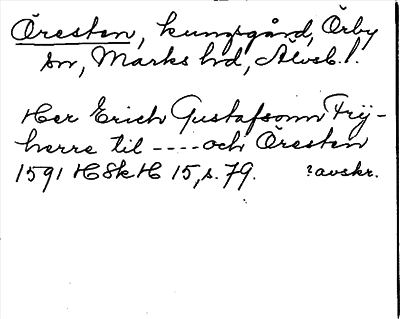 Öresten, kungsgård, Örby
sn, Marks hd, Älvsb. l.
Her Erich Gustafsonn Frij-
herre til ---- och Öresten
1591 HSkH 15, s. 79. ?avskr.